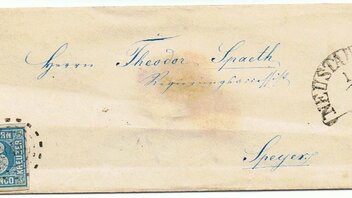 Herrn Theodor Spaeth
Regierungsaccessist
Speyer
NEUSTA
1
KREUZER